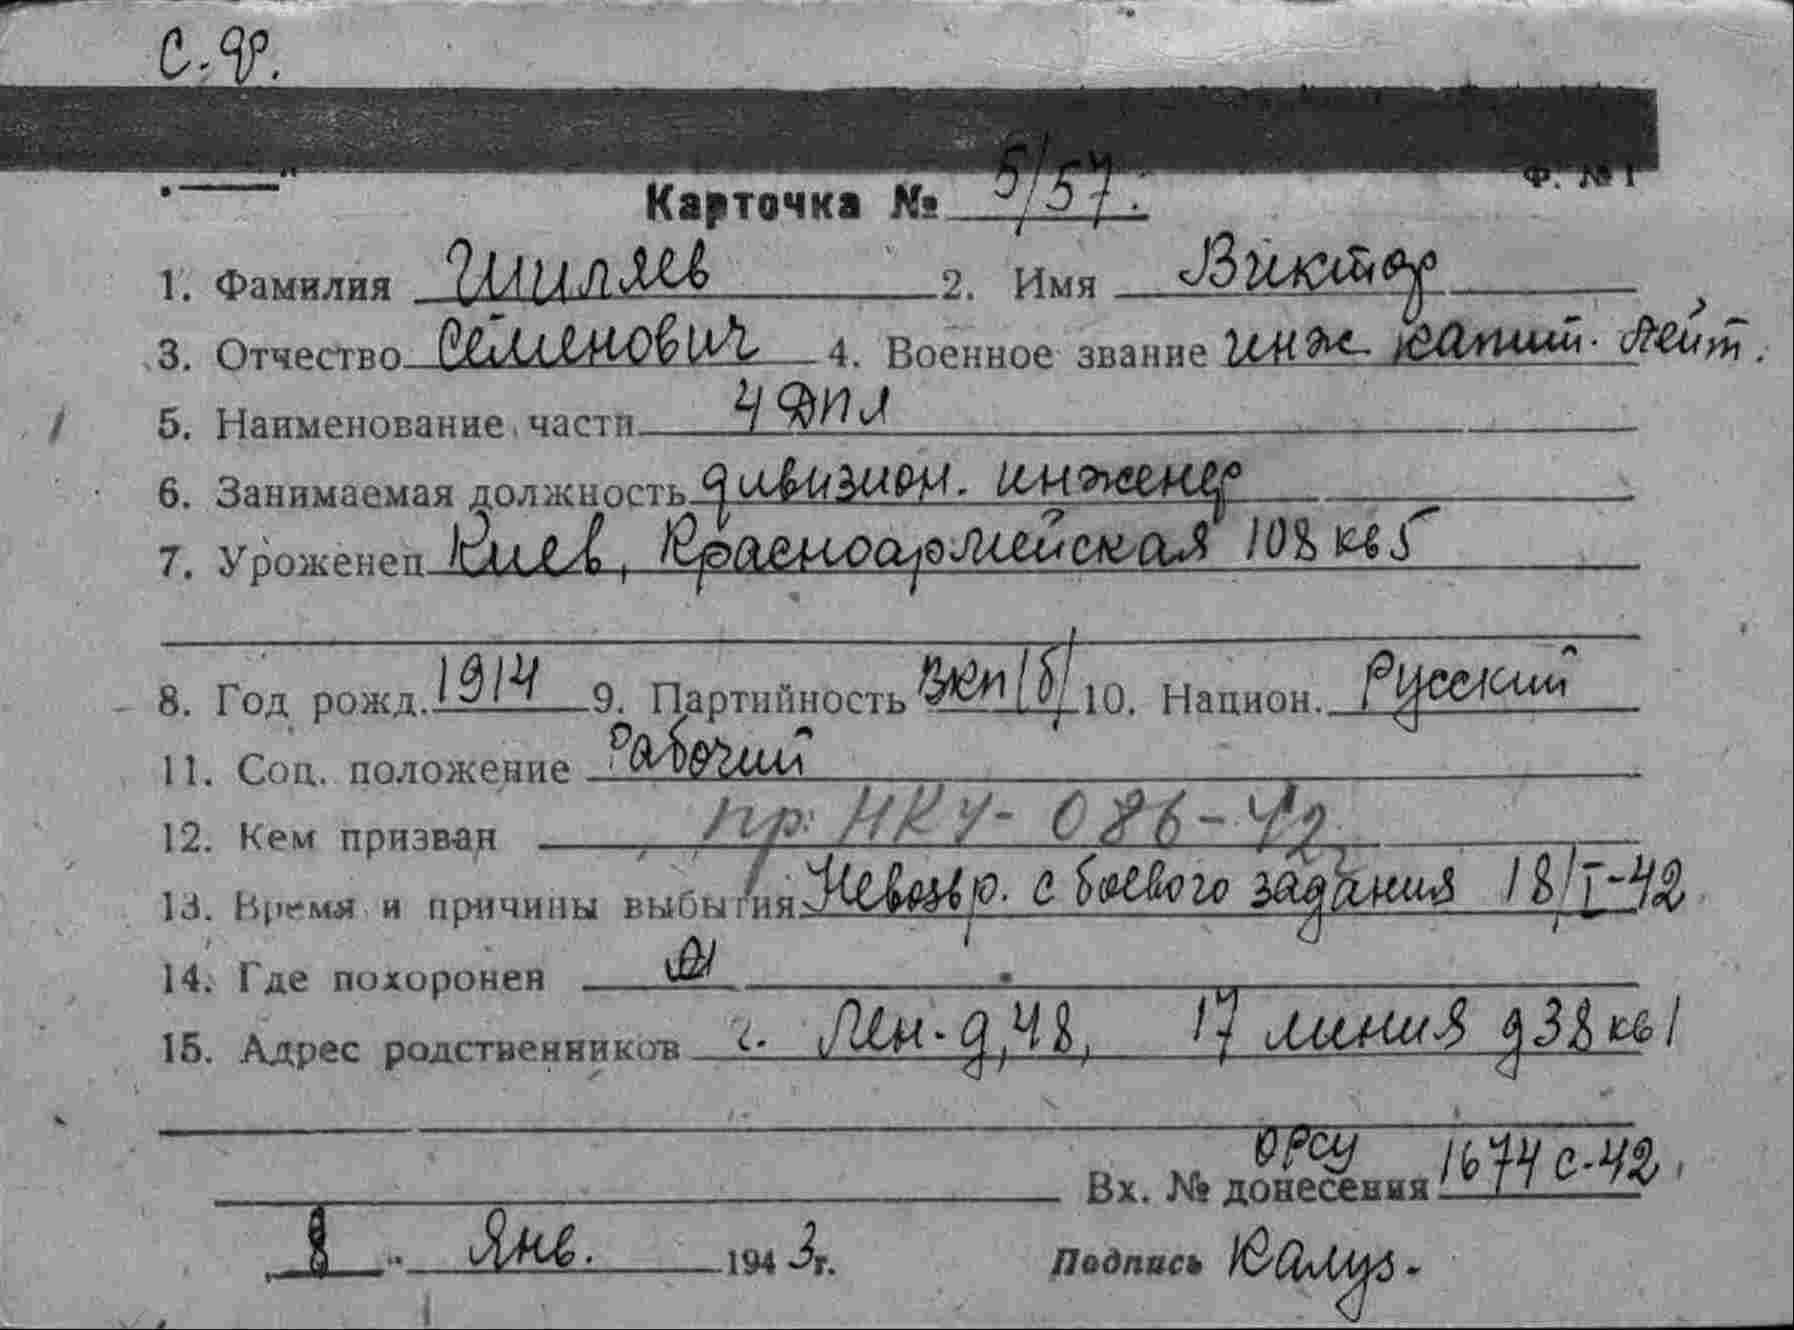 С.Ф.
Ф. № 1
Карточка № 5/57.
1. Фамилия Шиляев 2. Имя Виктор
3. Отчество Семенович 4. Военное звание инж капит. лейт.
5. Наименование части 4 ДПЛ
6. Занимаемая должность дивизион. инженер
7. Уроженец Киев, Красноармейская 108 кв 5
8. Год рожд. 1914 9. Партийность ВКП/б/ 10. Национ. Русский
11. Соц. положение Рабочий
12. Кем призван пр: НКУ-086-42
13. Время и причины выбытия Невозвр. с боевого задания 18/I-42
14. Где похоронен
15. Адрес родственников г. Лен-д, 48, 17 линия д 38 кв 1
ОРСУ
Вх. № донесения 1674 с-42
8 " Янв. 1943 г. Подпись Калуз.